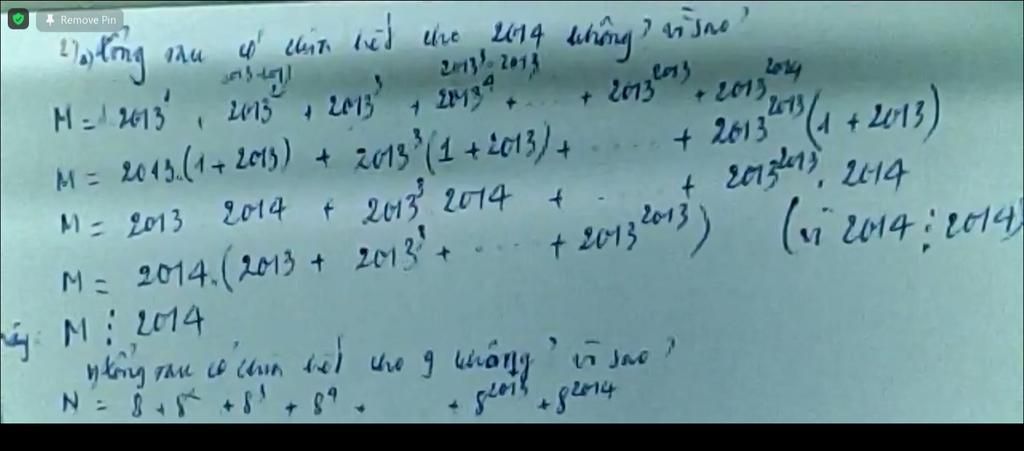 Remove Pin
2) a) tổng sau có chia hết cho 2014 không? vì sao?
2013³·2013
M = 2013¹ + 2013² + 2013³ + 2013⁴ + ... + 2013²⁰¹³ + 2013²⁰¹⁴
M = 2013.(1 + 2013) + 2013³(1 + 2013) + ..... + 2013²⁰¹³(1 + 2013)
M = 2013 2014 + 2013³ 2014 + ... + 2013²⁰¹³. 2014
M = 2014.(2013 + 2013³ + .... + 2013²⁰¹³) (vì 2014 ⋮ 2014)
M ⋮ 2014
tổng sau có chia hết cho 9 không? vì sao?
N = 8 + 8² + 8³ + 8⁴ + + 8²⁰¹³ + 8²⁰¹⁴